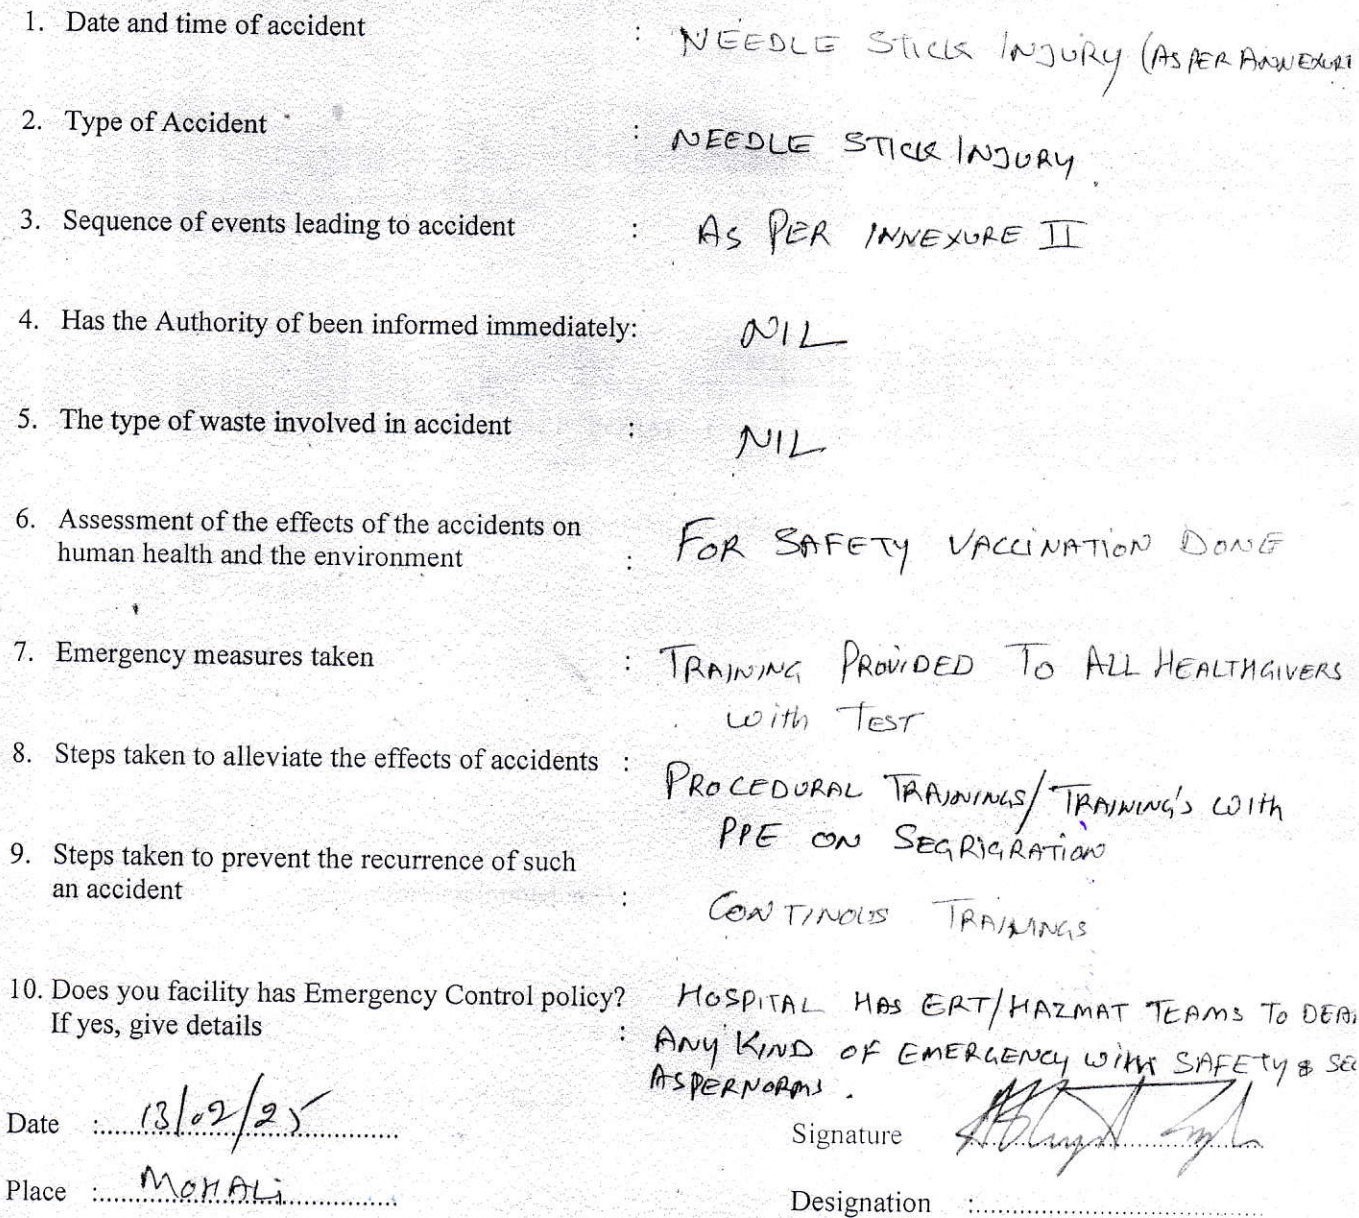 1. Date and time of accident : NEEDLE STICK INJURY (AS PER ANNEXURE
2. Type of Accident : NEEDLE STICK INJURY.
3. Sequence of events leading to accident : AS PER INNEXURE II
4. Has the Authority of been informed immediately: NIL
5. The type of waste involved in accident : NIL
6. Assessment of the effects of the accidents on
human health and the environment : FOR SAFETY VACCINATION DONE
7. Emergency measures taken : TRAINING PROVIDED TO ALL HEALTHGIVERS
with TEST
8. Steps taken to alleviate the effects of accidents : PROCEDURAL TRAININGS/TRAINING'S WITH
PPE ON SEGRIGRATION
9. Steps taken to prevent the recurrence of such
an accident : CONTINOUS TRAININGS
10. Does you facility has Emergency Control policy? HOSPITAL HAS ERT/HAZMAT TEAMS TO DEA
If yes, give details : ANY KIND OF EMERGENCY WITH SAFETY & SEC
AS PER NORMS.
Date : 13/02/25
Signature
Place : MOHALi
Designation :